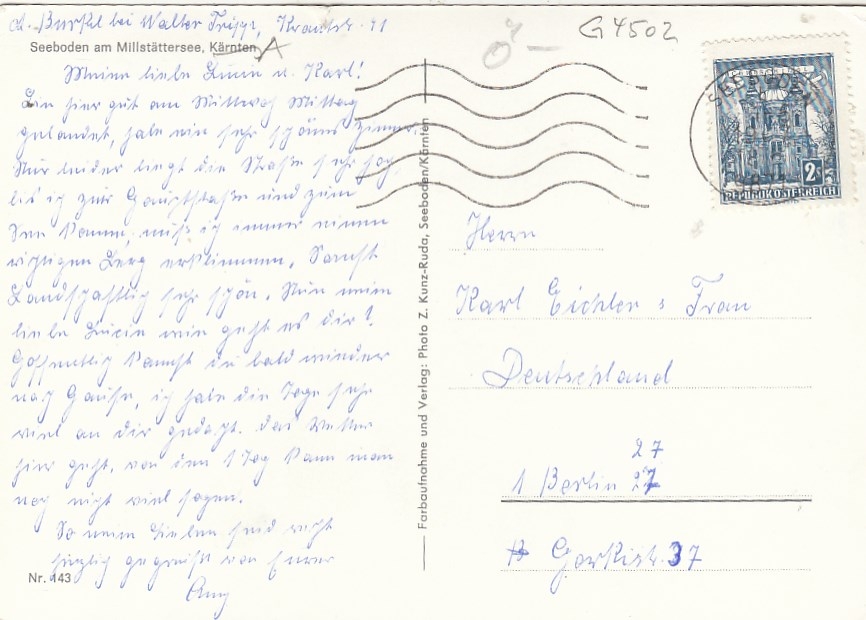 bei Walter
Seeboden am Millstättersee, Kärnten A
Meine liebe Luzie u. Karl!
Bin hier gut am Mittwoch Mittag
gelandet, habe ein sehr schönes Zimmer.
Nur leider liegt die Straße sehr hoch,
bis ich zur Hauptstraße und zum
See komme, muß ich immer einen
richtigen Berg erklimmen. Sonst
Landschaftlich sehr schön. Nun meine
liebe Luzie wie geht es dir?
Hoffentlich kannst du bald wieder
nach Hause, ich habe die Tage sehr
viel an dir gedacht. Das Wetter
hier geht, von den 1 Tag kann man
noch nicht viel sagen.
So meine Lieben seid recht
herzlich gegrüßt von Eurer
Nr. 143
Farbaufnahme und Verlag: Photo Z. Kunz-Ruda, Seeboden/Kärnten
G4502
Ö
2S
REPUBLIK ÖSTERREICH
Herrn
Karl Eichler & Frau
Deutschland
27
1 Berlin 27
Gorkistr. 37